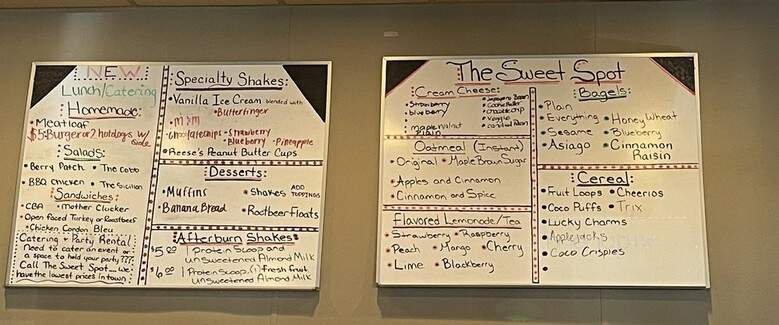 NEW
Lunch/Catering
Homemade:
Meatloaf
$5-Burger or 2 hotdogs w/
side
Salads:
Berry Patch The Cobb
BBQ Chicken The Sicilian
Sandwiches:
CBA mother Clucker
Open Faced Turkey or Roastbeef
Chicken Cordon Bleu
Catering & Party Rental
Need to cater an event or
a space to hold your party???
Call The Sweet Spot... we
have the lowest prices in town!
Specialty Shakes:
Vanilla Ice Cream blended with
Butterfinger
M&M
Strawberry
Blueberry Pineapple
Reese's Peanut Butter Cups
Desserts:
Muffins Shakes ADD TOPPINGS
Banana Bread Rootbeer Floats
Afterburn Shakes:
$5.00 1 Protein Scoop and
unsweetened Almond Milk
$6.00 1 Protein Scoop, (1) fresh fruit
unsweetened Almond Milk
The Sweet Spot
Cream Cheese:
Strawberry
blueberry
maple walnut
Plain
Veggie
Oatmeal (Instant)
Original Maple Brown Sugar
Apples and Cinnamon
Cinnamon and Spice
Flavored Lemonade/Tea
Strawberry Raspberry
Peach Mango Cherry
Lime Blackberry
Bagels:
Plain
Everything Honey Wheat
Sesame Blueberry
Asiago Cinnamon
Raisin
Cereal:
Fruit Loops Cheerios
Coco Puffs Trix
Lucky Charms
Applejacks
Coco Crispies